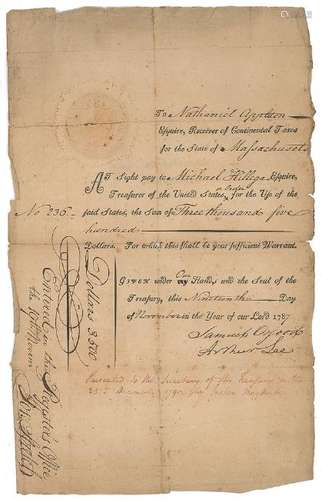 To Nathaniel Appleton
Esquire, Receiver of Continental Taxes
for the State of Massachusetts
AT Sight pay to Michael Hillegas Esquire,
Treasurer of the United States, or Order for the Use of the
No 236. said States, the Sum of Three thousand five
hundred
Dollars. For which this shall be your sufficient Warrant.
GIVEN under Our Hands and the Seal of the
Treasury, this Nineteenth Day
of November in the Year of our Lord 1787
Samuel Osgood
Arthur Lee
to the Secretary of the Treasury on the
Dollars 3.500
Entered in the Register's Office